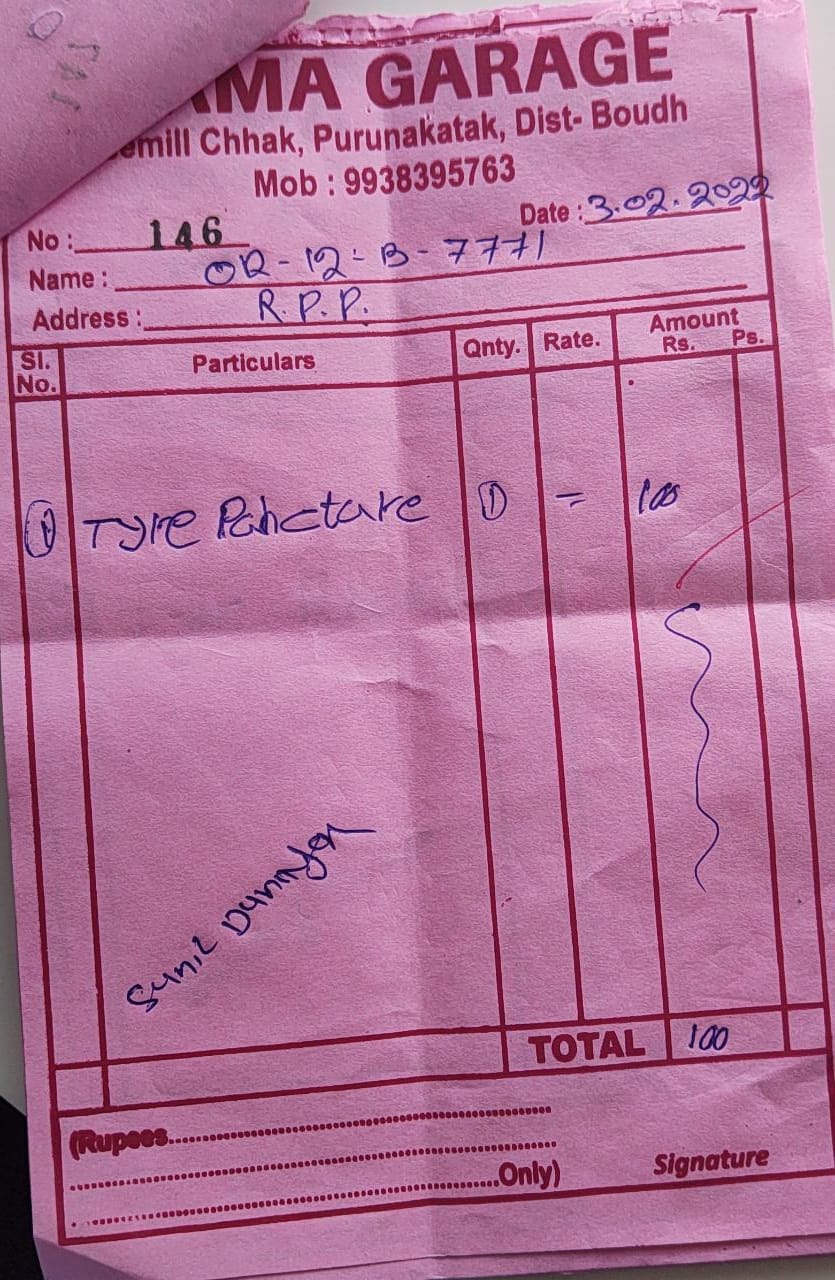 MA GARAGE
emill Chhak, Purunakatak, Dist- Boudh
Mob : 9938395763
No : 146 Date : 3.02.2022
Name : OR-12-B-7771
Address : R.P.P.
Sl. No. Particulars Qnty. Rate. Amount Rs. Ps.
① Tyre Pahctare ① = 100
Sunil
TOTAL 100
(Rupees
Only)
Signature